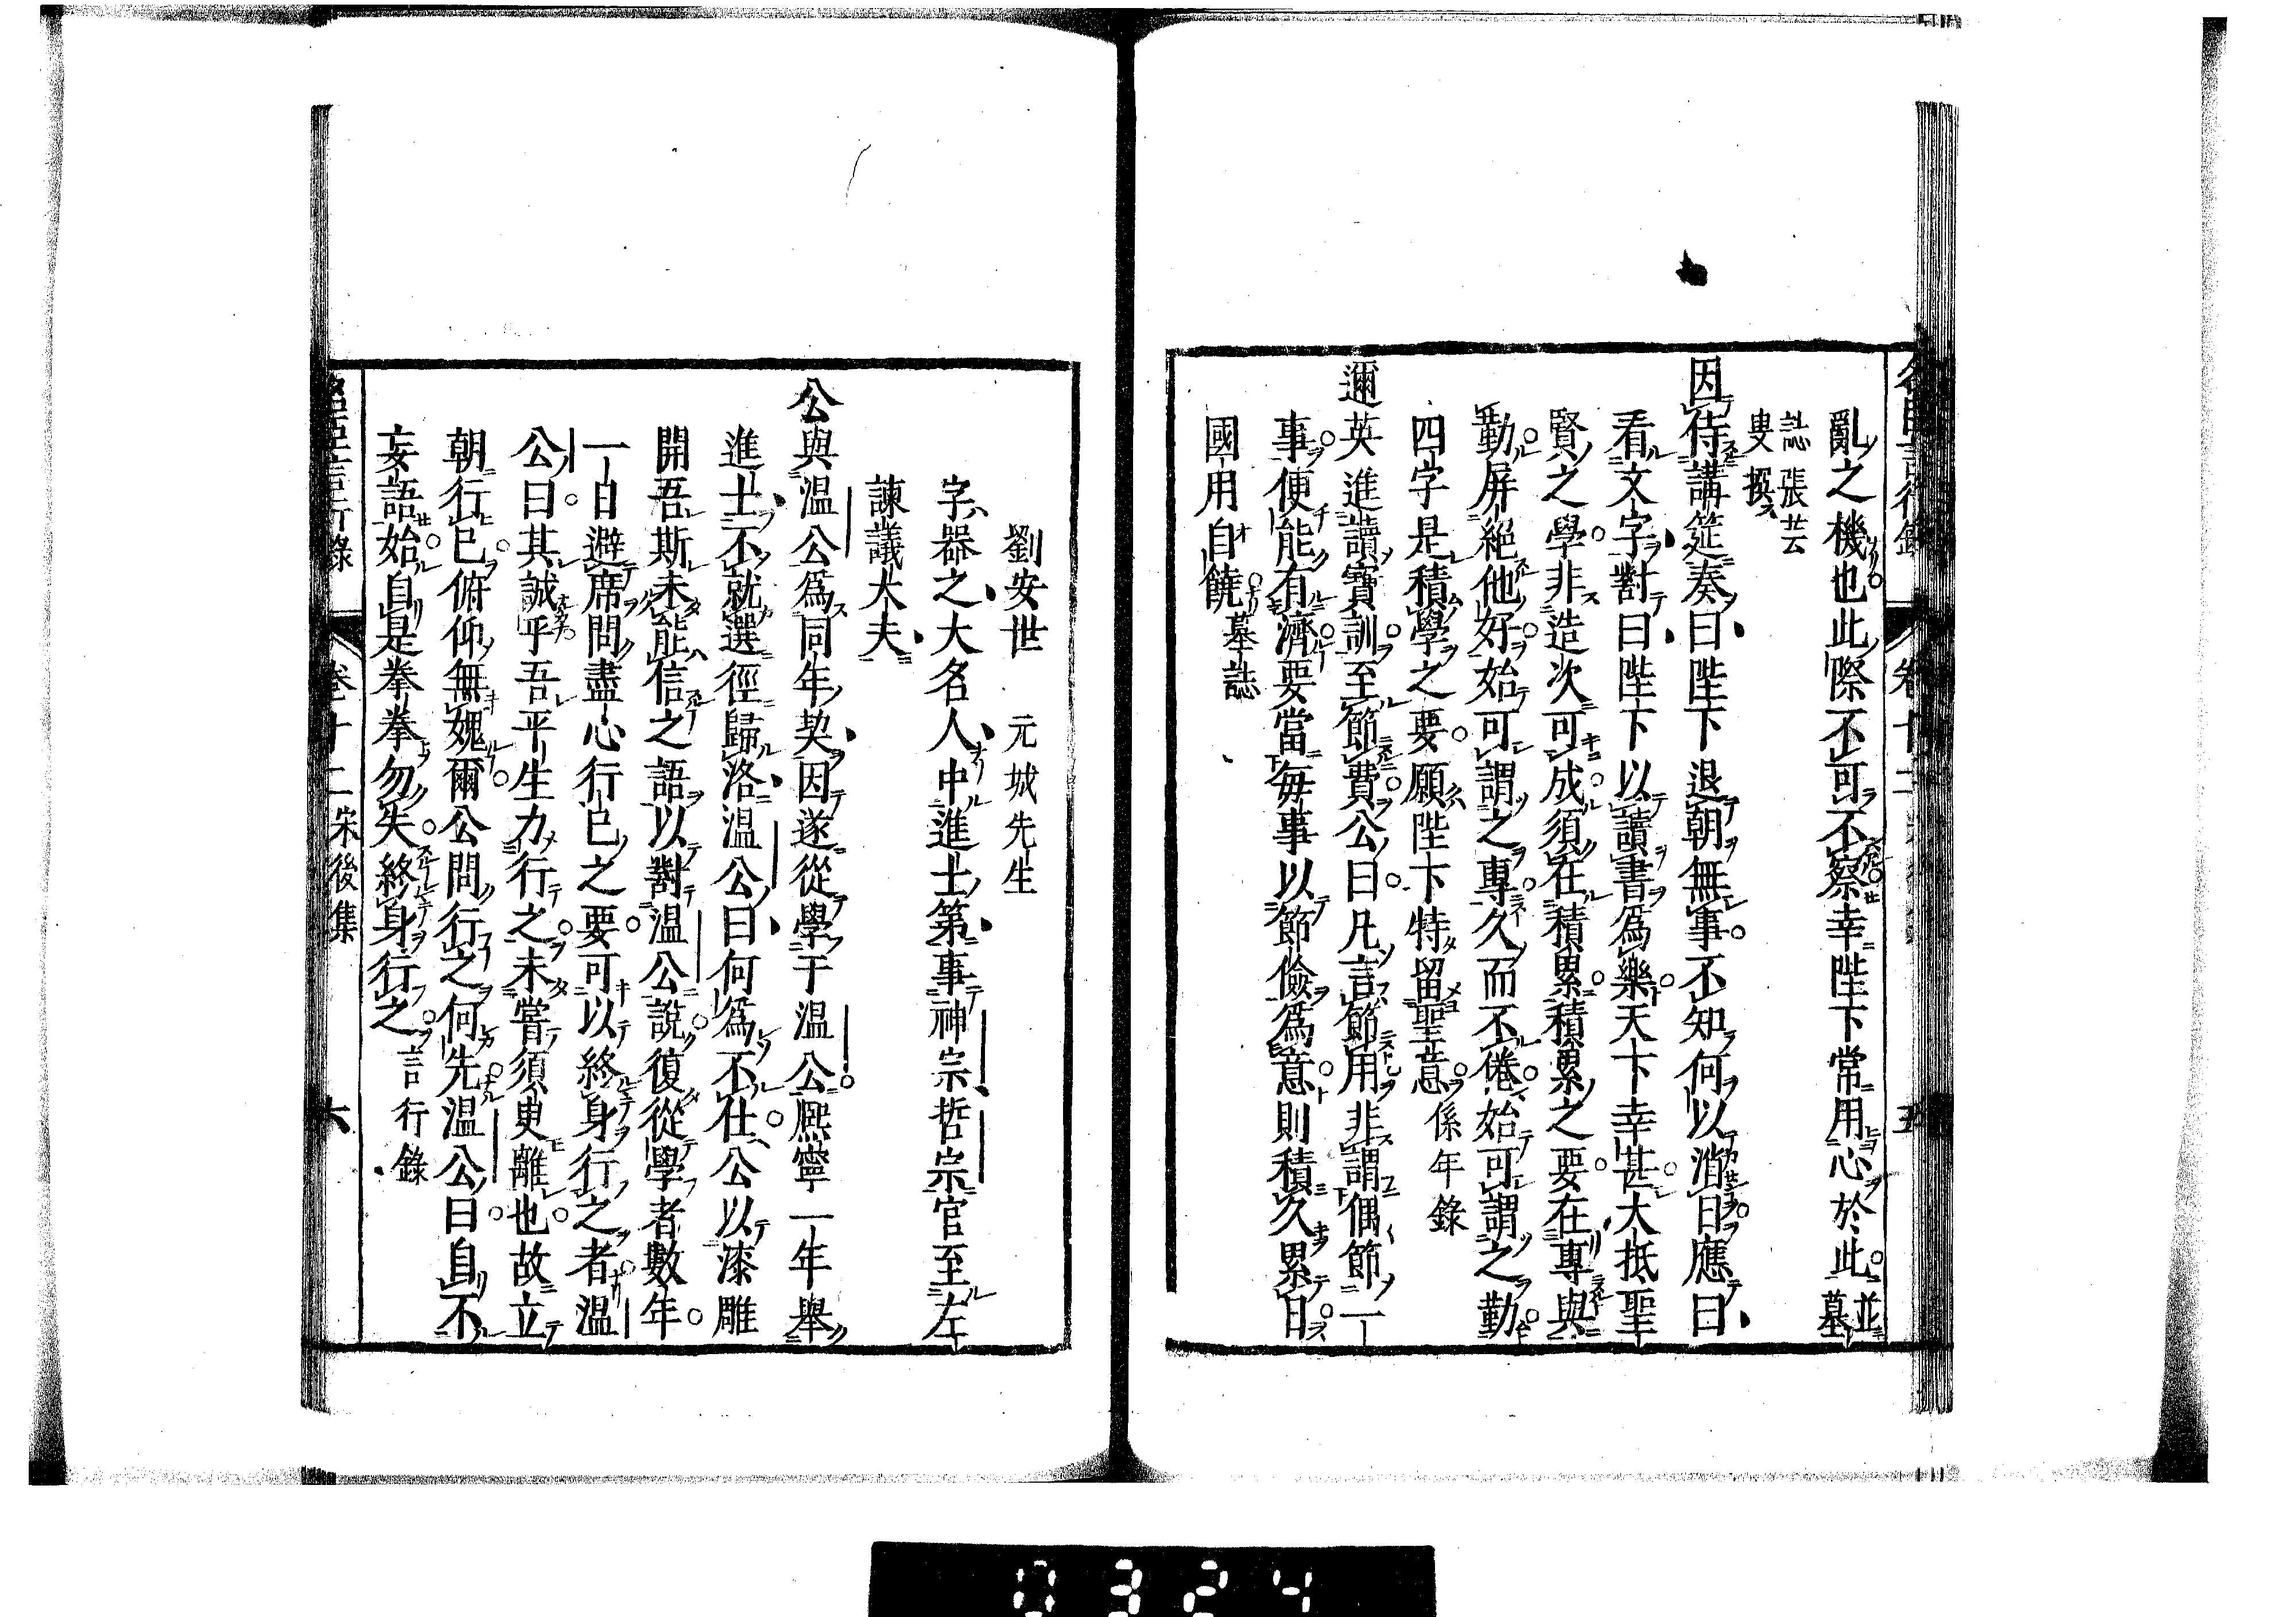 亂之機也此際不可不察幸陛下常用心於此並墓
誌張芸
叟撰
因侍講筵奏曰陛下退朝無事不知何以消日應曰
看文字對曰陛下以讀書爲樂天下幸甚大抵聖
賢之學非造次可成須在積累積累之要在專與
勤屏絕他好始可謂之專久而不倦始可謂之勤
四字是積學之要願陛下特留聖意係年錄
邇英進讀寶訓至節費公曰凡言節用非謂偶節一
事便能有濟要當每事以節儉爲意則積久累日
國用自饒墓誌
劉安世 元城先生
字器之大名人中進士第事神宗哲宗官至左
諫議大夫
公與温公爲同年契因遂從學于温公熈寧一年舉
進士不就選徑歸洛温公曰何爲不仕公以漆雕
開吾斯未能信之語以對温公說復從學者數年
一日避席問盡心行己之要可以終身行之者温
公曰其誠乎吾平生力行之未嘗須臾離也故立
朝行己俯仰無媿爾公問行之何先温公曰自不
妄語始自是拳拳勿失終身行之言行錄
卷十二宋後集 六
0324